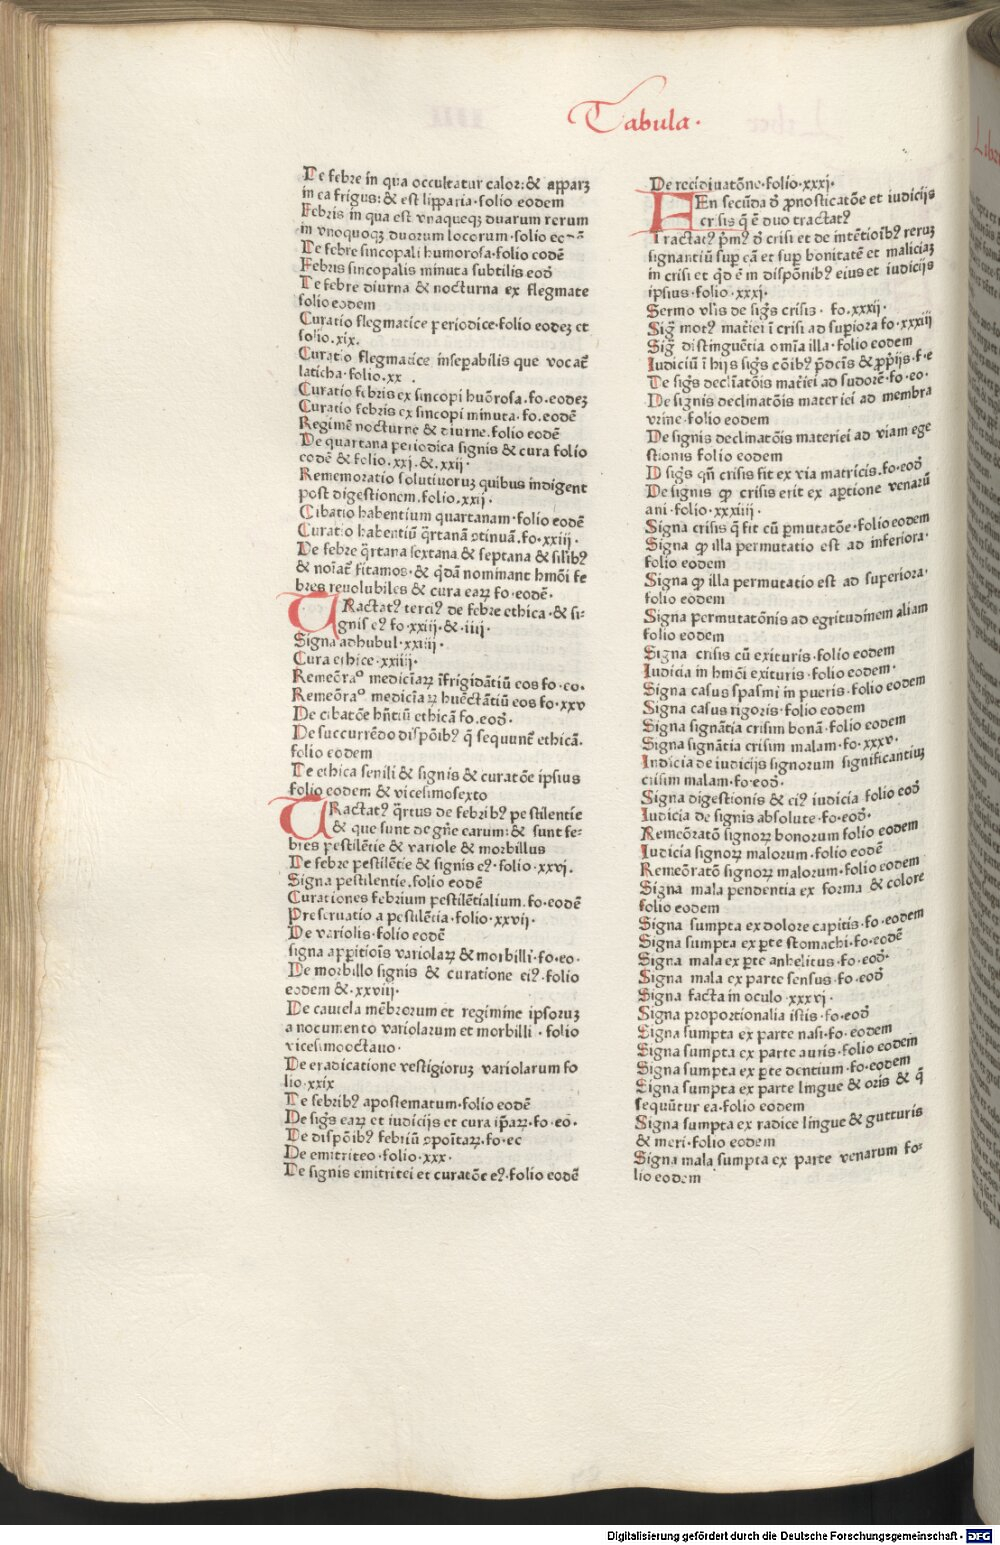 Tabula.
De febre in qua occultatur calor: & apparꝫ
in ea frigus: & est lipparia. folio eodem
Febris in qua est vnaqueqꝫ duarum rerum
in vnoquoqꝫ duorum locorum. folio
De febre sincopali humorosa. folio eodē
Febris sincopalis minuta subtilis eod̄
De febre diurna & nocturna ex flegmate
folio eodem
Curatio flegmatice periodice. folio eodeꝫ et
folio. xix.
Curatio flegmatice inseꝑabilis que vocat᷑
laticha. folio. xx .
Curatio febris ex sincopi huōrosa. fo. eodeꝫ
Curatio febris ex sincopi minuta. fo. eodē
Regimē nocturne & diurne. folio eodē
De quartana periodica signis & cura folio
eodē & folio. xxj. & .xxij.
Rememoratio solutiuoruꝫ quibus indigent
post digestionem. folio. xxij.
Cibatio habentium quartanam. folio eodē
Curatio habentiū q̄rtanā ꝯtinuā. fo. xxiij.
De febre q̄rtana sextana & septana & silibꝰ
& noīat᷑ fitamos. & q̄dā nominant hmōi fe
bres reuolubiles & cura eaꝝ fo. eodē.
TRactatꝰ terciꝰ de febre ethica. & si⸗
gnis eiꝰ fo. xxiij. & .iiij.
Signa adhubul. xxiiij.
Cura ethice. xxiiij.
Remeōraᵒ mediciaꝝ īfrigidātiū eos fo. eo.
Remeōraᵒ mediciaꝝ huēctātiū eos fo. xxv
De cibatōe hn̄tiū ethicā fo. eod̄.
De succurrēdo dispōibꝰ q̄ sequunt᷑ ethicā.
folio eodem
De ethica senili & signis & curatōe ipsius
folio eodem & vicesimosexto
TRactatꝰ q̄rtus de febribꝰ pestilentie
& que sunt de gn̄e earum: & sunt fe⸗
bres pestilētie & variole & morbillus
De febre pestilētie & signis eiꝰ. folio. xxvj.
Signa pestilentie. folio eodē
Curationes febrium pestilētialium. fo. eodē
Preseruatio a pestilētia. folio. xxvij.
De variolis. folio eodē
signa apꝑitiois variolaꝝ & morbilli. fo. eo.
De morbillo signis & curatione eiꝰ. folio
eodem &. xxviij.
De cautela mēbrorum et regimine ipsoruꝫ
a nocumento variolarum et morbilli . folio
vicesimooctauo.
De eradicatione vestigioruꝫ variolarum fo
lio. xxix
De febribꝰ apostematum. folio eodē
De sigꝭs eaꝝ et iudicijs et cura ip̄aꝝ. fo. eo.
De dispōibꝰ febriū ꝯpoītaꝝ. fo. eo
De emitriteo. folio. xxx.
De signis emitritei et curatōe eiꝰ. folio eodē
De recidiuatōne. folio. xxxj.
FEn secūda d̄ ꝓnosticatōe et iudicijs
crisis q̄ ē duo tractatꝰ
Tractatꝰ p̄mꝰ d̄ crisi et de intētioibꝰ reruꝫ
signantiū suꝑ eā et suꝑ bonitatē et maliciaꝫ
in crisi et qd̄ ē in dispōnibꝰ eius et iudicijs
ipsius. folio. xxxj.
Sermo vl̄is de sigꝭs crisis . fo. xxxij.
Sigꝭ motꝰ mat̄iei ī crisi ad suꝑiora fo. xxxiij
Sigꝭ distinguētia omīa illa. folio eodem
Iudiciū ī hijs sigꝭs cōibꝰ p̄dc̄is & ꝓp̄ijs. f. e
De sigꝭs declīatōis mat̄iei ad sudorē. fo. eo.
De signis declinatōis materiei ad membra
vrine. folio eodem
De signis declinatōis materiei ad viam ege
stionis folio eodem
D sigꝭs qn̄ crisis fit ex via matricis. fo. eod̄
De signis ꝙ crisis erit ex aꝑtione venarū
ani. folio. xxxiiij.
Signa crisis q̄ fit cū ꝑmutatōe. folio eodem
Signa ꝙ illa permutatio est ad inferiora.
folio eodem
Signa ꝙ illa permutatio est ad superiora.
folio eodem
Signa permutatōnis ad egritudinem aliam
folio eodem
Signa crisis cū exituris. folio eodem
Iudicia in hmōi exituris. folio eodem.
Signa casus spasmi in pueris. folio eodem
Signa casus rigoris. folio eodem
Signa signātia crisim bonā. folio eodem
Signa signātia crisim malam. fo. xxxv.
Indicia de iudicijs signorum significantiuꝫ
crisim malam. fo. eod̄.
Signa digestionis & eiꝰ iudicia folio eod̄
Iudicia de signis absolute. fo. eod̄.
Remeōratō signoꝝ bonorum folio eodem
Iudicia signoꝝ malorum. folio eodē
Remeōratō signoꝝ malorum. folio eodem
Signa mala pendentia ex forma & colore
folio eodem
Signa sumpta ex dolore capitis. fo. eodem
Signa sumpta ex ꝑte stomachi. fo. eodē
Signa mala ex ꝑte anhelitus. fo. eod̄.
Signa mala ex parte sensus. fo. eod̄
Signa facta in oculo .xxxvj.
Signa proportionalia istis. fo. eod̄
Signa sumpta ex parte nasi. fo. eodem
Signa sumpta ex parte auris. folio eodem
Signa sumpta ex ꝑte dentium. fo. eodem
Signa sumpta ex parte lingue & oris & q̄
sequūtur ea. folio eodem
Signa sumpta ex radice lingue & gutturis
& meri. folio eodem
Signa mala sumpta ex parte venarum fo⸗
lio eodem
Digitalisierung gefördert durch die Deutsche Forschungsgemeinschaft - DFG